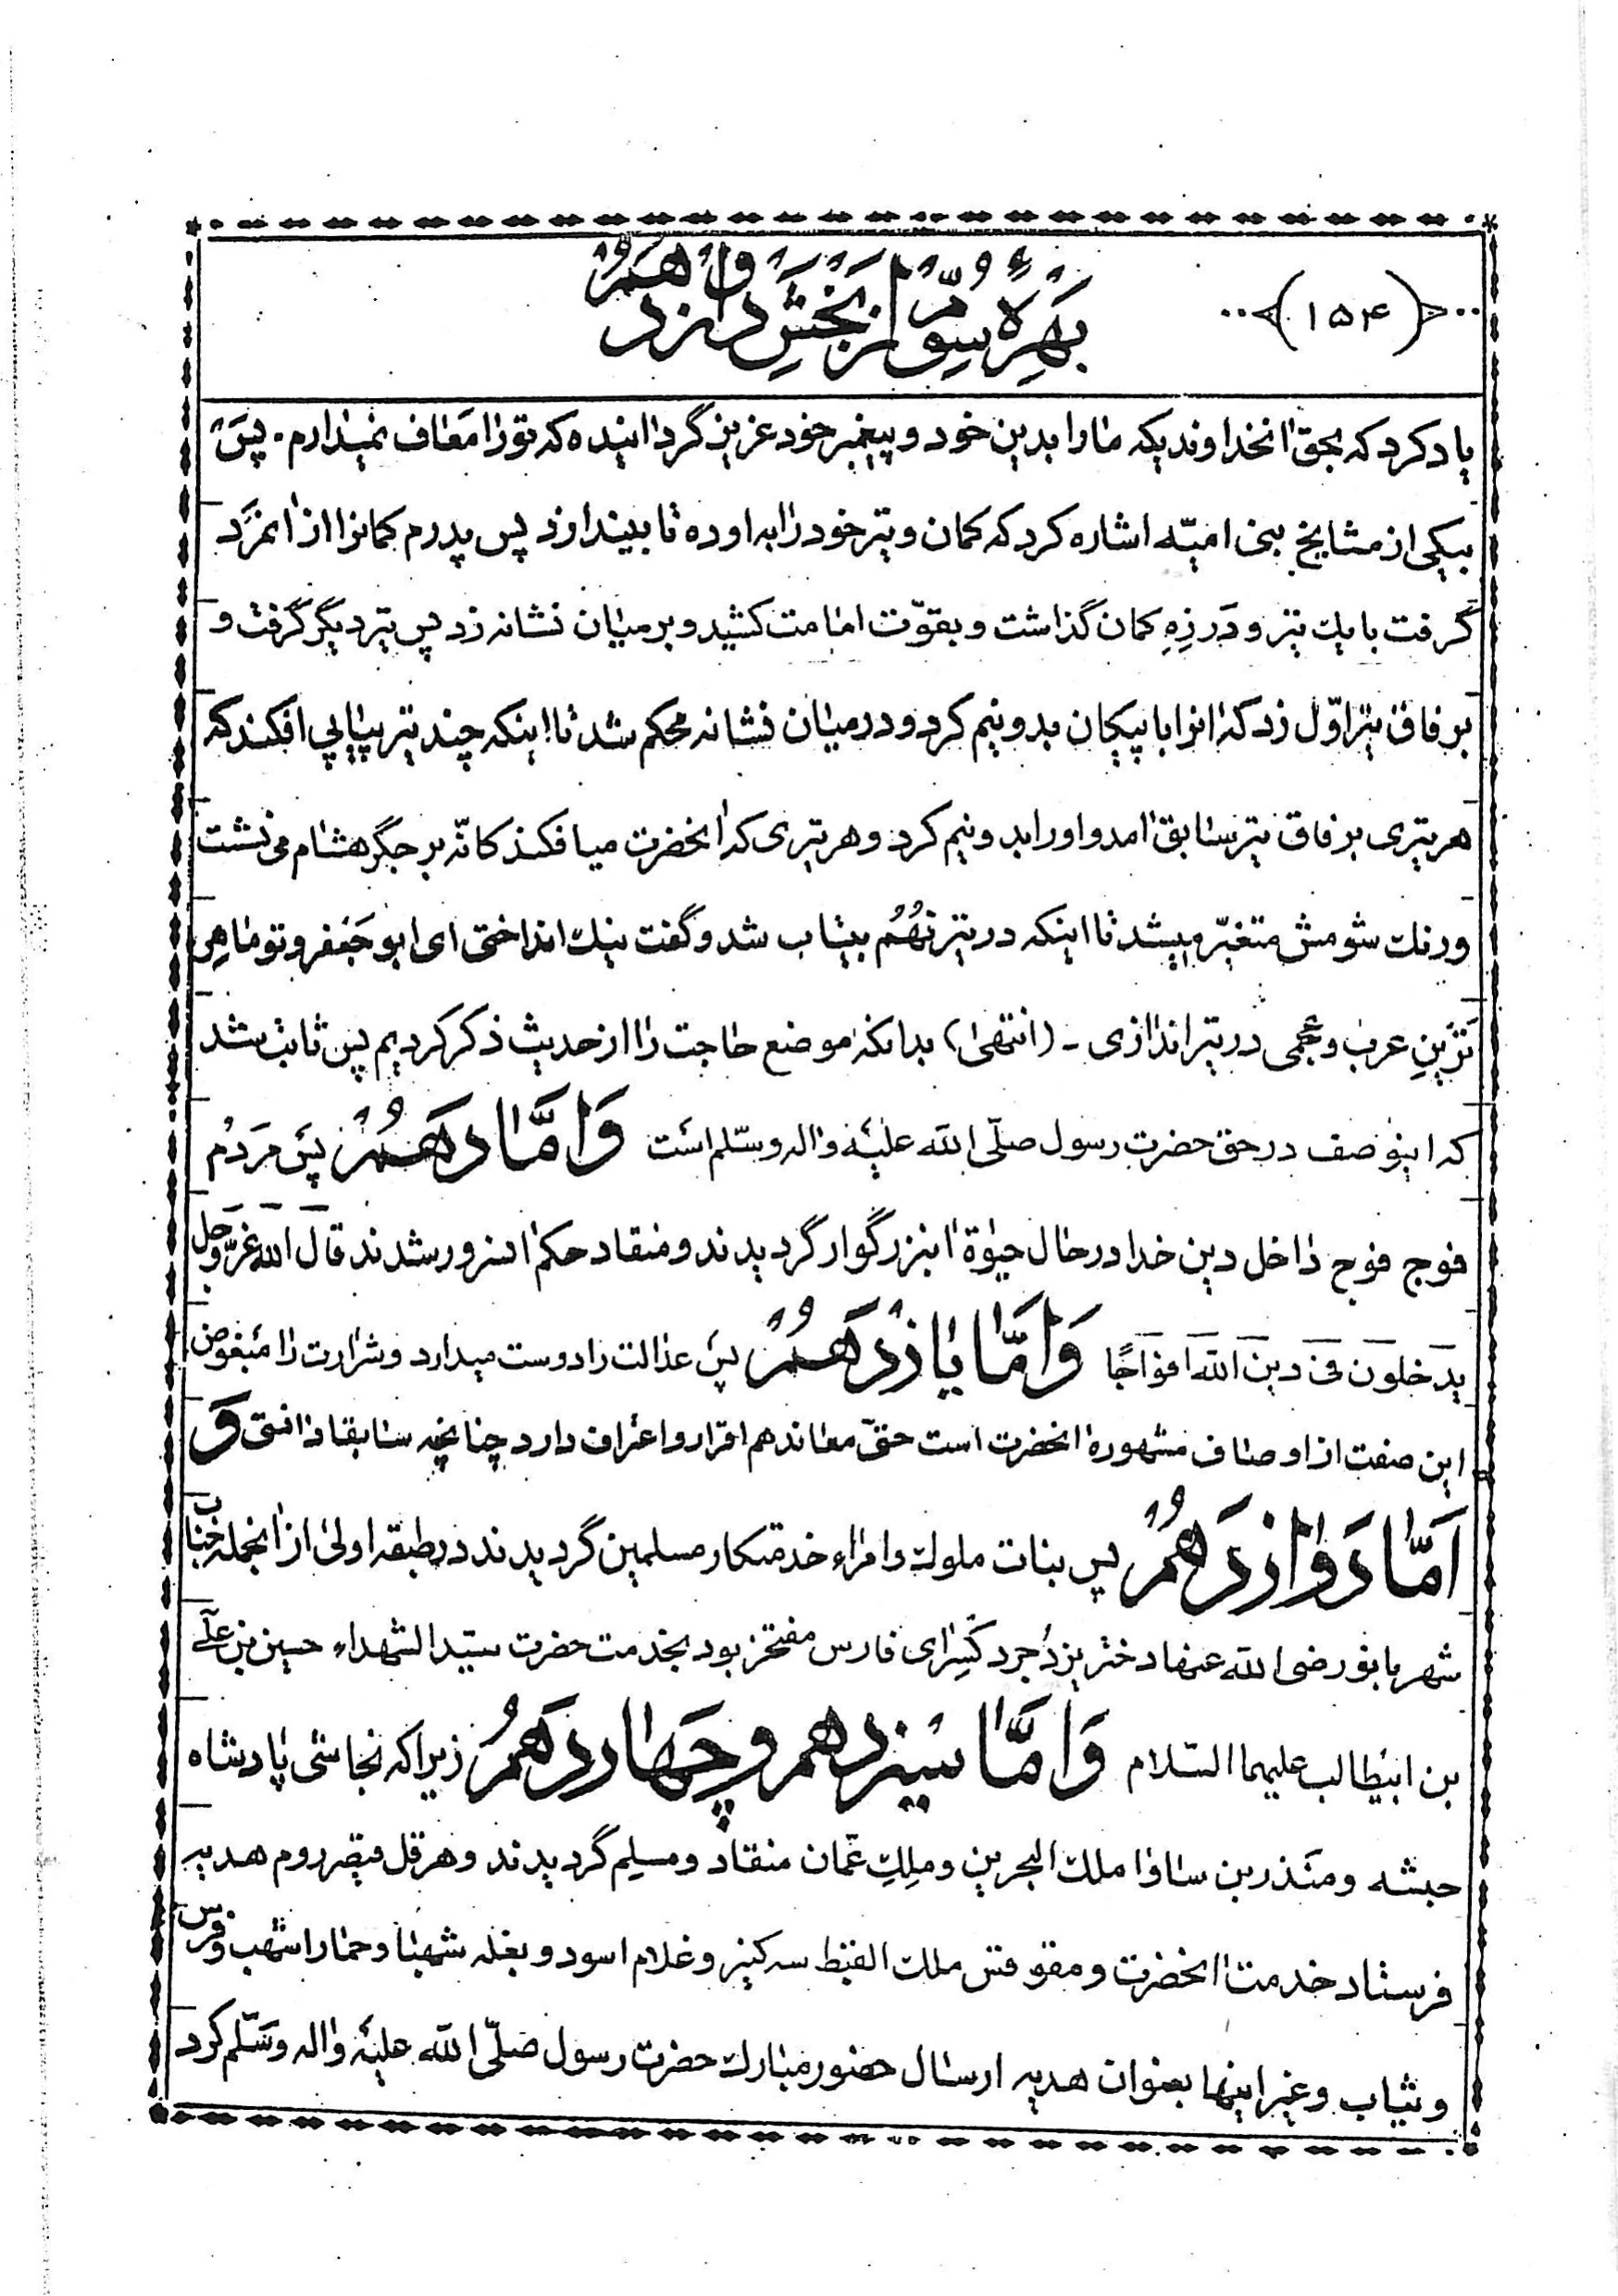 (۱۵۴)
بهرۀ سوّم از بخش دوازدهم
یاد کرد که بحق انخداوندیکه ما را بدین خود و پیغمبر خود عزیز گردانیده که تو را معاف نمیدارم. پس
بیکی از مشایخ بنی امیّه اشاره کرد که کمان و تیر خود را به او ده تا بیندازد پس پدرم کمانرا از انمرد
گرفت با یك تیر و در زه کمان گذاشت و بقوّت امامت کشید و بر میان نشانه زد پس تیر دیگر گرفت و
بر فاق تیر اوّل زد که انرا با پیکان بدو نیم کرد و در میان نشانه محکم شد تا اینکه چند تیر پیاپی افکند که
هر تیری بر فاق تیر سابق امد و او را بدو نیم کرد و هر تیری که انحضرت میافکند کانّه بر جگر هشام می نشت
و رنك شومش متغیّر میشد تا اینکه در تیر نهم بیتاب شد و گفت نیك انداختی ای ابو جعفر و تو ماهر
ترین عرب و عجمی در تیر اندازی - (انتهی) بدانکه موضع حاجت را از حدیث ذکر کردیم پس ثابت شد
که اینوصف در حق حضرت رسول صلّی الله علیه واله وسلّم است وَامَّا دهم پس مردم
فوج فوج داخل دین خدا در حال حیوة انبزرگوار گردیدند و منقاد حکم انسرور شدند قال الله عزّ وجل
یدخلون فی دین الله افواجًا وَامَّا یازدهم پس عدالت را دوست میدارد و شرارت را مبغوض
این صفت از اوصاف مشهوره انحضرت است حتّی معاند هم اقرار و اعتراف دارد چنانچه سابقا دانستی وَ
اَمَّا دوازدهم پس بنات ملوك و امراء خدمتکار مسلمین گردیدند در طبقه اولی از انجمله جناب
شهربانو رضی الله عنها دختر یزدجرد کسرای فارس مفتخر بود بخدمت حضرت سیّد الشهداء حسین بن علی
بن ابیطالب علیهما السّلام وَامَّا سیزدهم و چهاردهم زیرا که نجاشی پادشاه
حبشه و منذر بن ساوا ملك البحرین و ملِكِ عمّان منقاد و مسلِم گردیدند و هرقل قیصر روم هدیه
فرستاد خدمت انحضرت و مقوقس ملك القبط سه کنیز و غلام اسود و بغله شهبا و حمار اشهب و فرس
و ثیاب و غیر اینها بعنوان هدیه ارسال حضور مبارك حضرت رسول صلّی الله علیه واله وسلّم کرد